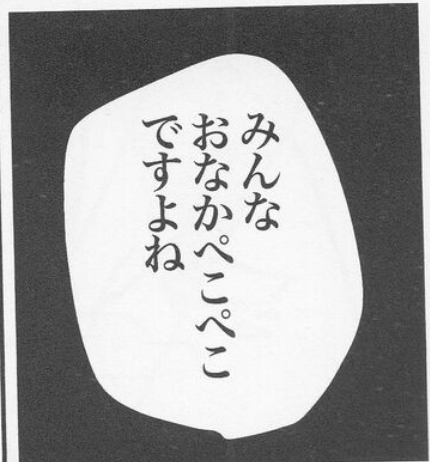 みんな
おなかぺこぺこ
ですよね